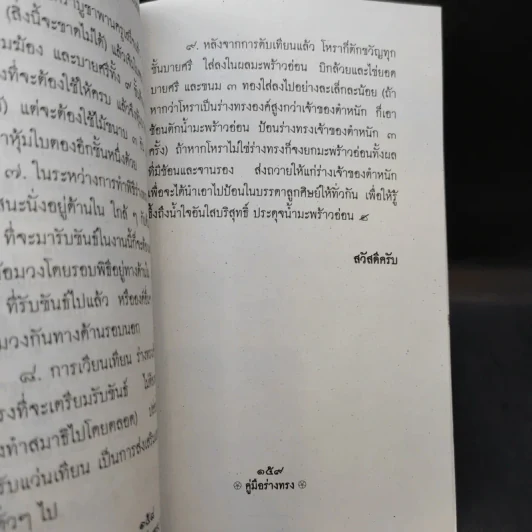 (สิ่งนี้จะขาดไม่ได้)
และบายศรีทั้ง ๙
ที่จะต้องใช้ให้ครบ
แต่จะต้องใช้ไม้ขนาบ ๓
หุ้มใบตองอีกชั้นหนึ่งด้วย
๗. ในระหว่างการทำพิธี
นั่งอยู่ด้านใน ใกล้ ๆ
ที่จะมารับขันธ์ในงานนี้
อมวงโดยรอบพิธีอยู่ทางด้าน
ที่รับขันธ์ไปแล้ว
มวงกันทางด้านรอบนอก
๘. การเวียนเทียน
รงที่จะเตรียมรับขันธ์
งทำสมาธิไปโดยตลอด)
รับแว่นเทียน เป็นการส่งเสริม
ๆ ไป
๑๕๘
๙. หลังจากการดับเทียนแล้ว โหราก็ตักขวัญทุก
ชั้นบายศรี ใส่ลงในผลมะพร้าวอ่อน บิกล้วยและไข่ยอด
บายศรี และขนม ๓ ทองใส่ลงไปอย่างละเล็กละน้อย (ถ้า
หากว่าโหราเป็นร่างทรงองค์สูงกว่าเจ้าของตำหนัก ก็เอา
ช้อนตักน้ำมะพร้าวอ่อน ป้อนร่างทรงเจ้าของตำหนัก ๓
ครั้ง) ถ้าหากโหราไม่ใช่ร่างทรงก็จงยกมะพร้าวอ่อนทั้งผล
ที่มีช้อนและจานรอง ส่งถวายให้แก่ร่างเจ้าของตำหนัก
เพื่อจะได้นำเอาไปป้อนในบรรดาลูกศิษย์ให้ทั่วกัน เพื่อให้รู้
ซึ้งถึงน้ำใจอันใสบริสุทธิ์ ประดุจน้ำมะพร้าวอ่อน ๚
สวัสดีครับ
๑๕๙
คู่มือร่างทรง